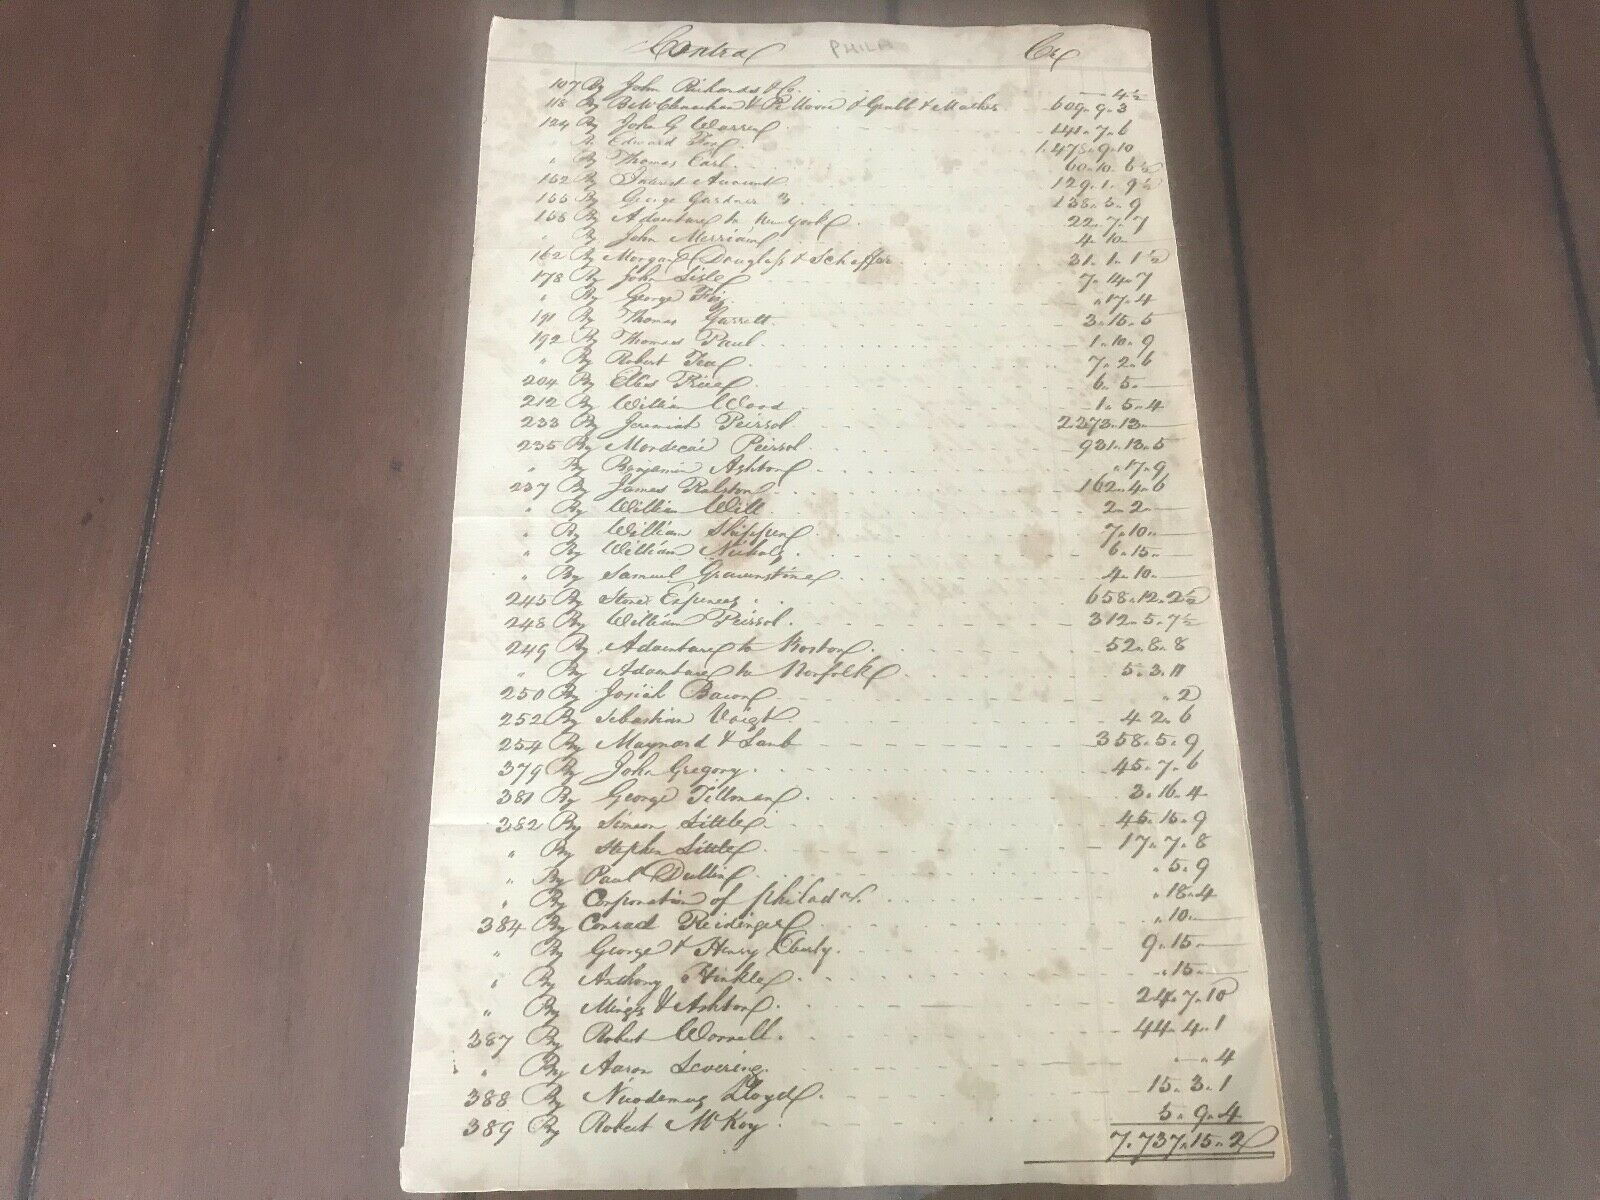 Contra PHILA Cr
107 By John Richards & Co. 4½
118 By B McClenachan & P. Moore & Grubb & Mather 609.9.3
124 By John G Warren 141.7.6
" By Edward Fox 1.478.9.10
" By Thomas Earl 60.10.6½
152 By Interest Account 129.1.9½
155 By George Gardner 138.5.9
158 By Adventure to New York 22.7.7
" By John Merriam 4.10
162 By Morgan Douglass & Scheffer 31.1.1½
178 By John Lisle 7.14.7
" By George Fox ".17.4
191 By Thomas Garrett 3.15.5
192 By Thomas Paul 1.10.9
" By Robert Tea 7.2.6
204 By Ellis Price 6.5.
212 By William Wood 1.5.4
233 By Jeremiah Peirsol 2.273.13
235 By Mordecai Peirsol 931.13.5
" By Benjamin Ashton ".17.9
237 By James Ralston 162.4.6
" By William Will 2.2
" By William Shippen 7.10
" By William Nichols 6.15
" By Samuel Graunstine 4.10
245 By Store Expences 658.12.2½
248 By William Peirsol 312.5.7½
249 By Adventure to Boston 52.8.8
" By Adventure to Norfolk 5.3.11
250 By Josiah Bacon ".2
252 By Sebastian Voigt 4 2.6
254 By Maynard & Lamb 358.5.9
379 By John Gregory 45.7.6
381 By George Tillman 3.16.4
382 By Simeon Little 45.15.9
" By Stephen Little 17.7.8
" By Paul ".5.9
" By Corporation of philada. ".18.4
384 By Conrad Reidinger ".10
" By George & Henry Eberly 9.15
" By Anthony Hinkle ".15
" By & Ashton 24.7.10
387 By Robert Worrell 44.4.1
" By Aaron Levering 4
388 By Nicodemus Lloyd 15.3.1
389 By Robert McKoy 5.9.4
7.737.15.2